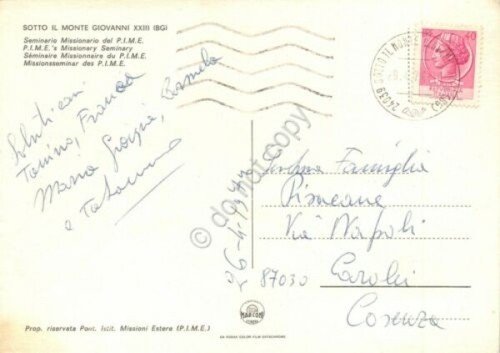 SOTTO IL MONTE GIOVANNI XXIII (BG)
Seminario Missionario del P.I.M.E.
P.I.M.E.'s Missionary Seminary
Séminaire Missionnaire du P.I.M.E.
Missionsseminar des P.I.M.E.
Saluti cari
Tonino, Franca
Maria Grazia, Carmela
e
26-4-1974
Famiglia
Via Napoli
87030 Carolei
Cosenza
40
24039 SOTTO IL MONTE
MARCONI
Prop. riservata Pont. Istit. Missioni Estere (P.I.M.E.)
DA KODAK COLOR FILM EKTACHROME
© damatcopy